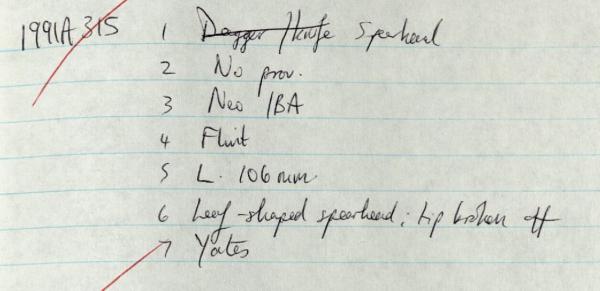 1991A315 1 Dagger/knife Spearhead
2 No prov.
3 Neo/BA
4 Flint
5 L. 106mm.
6 Leaf-shaped spearhead; tip broken off
7 Yates